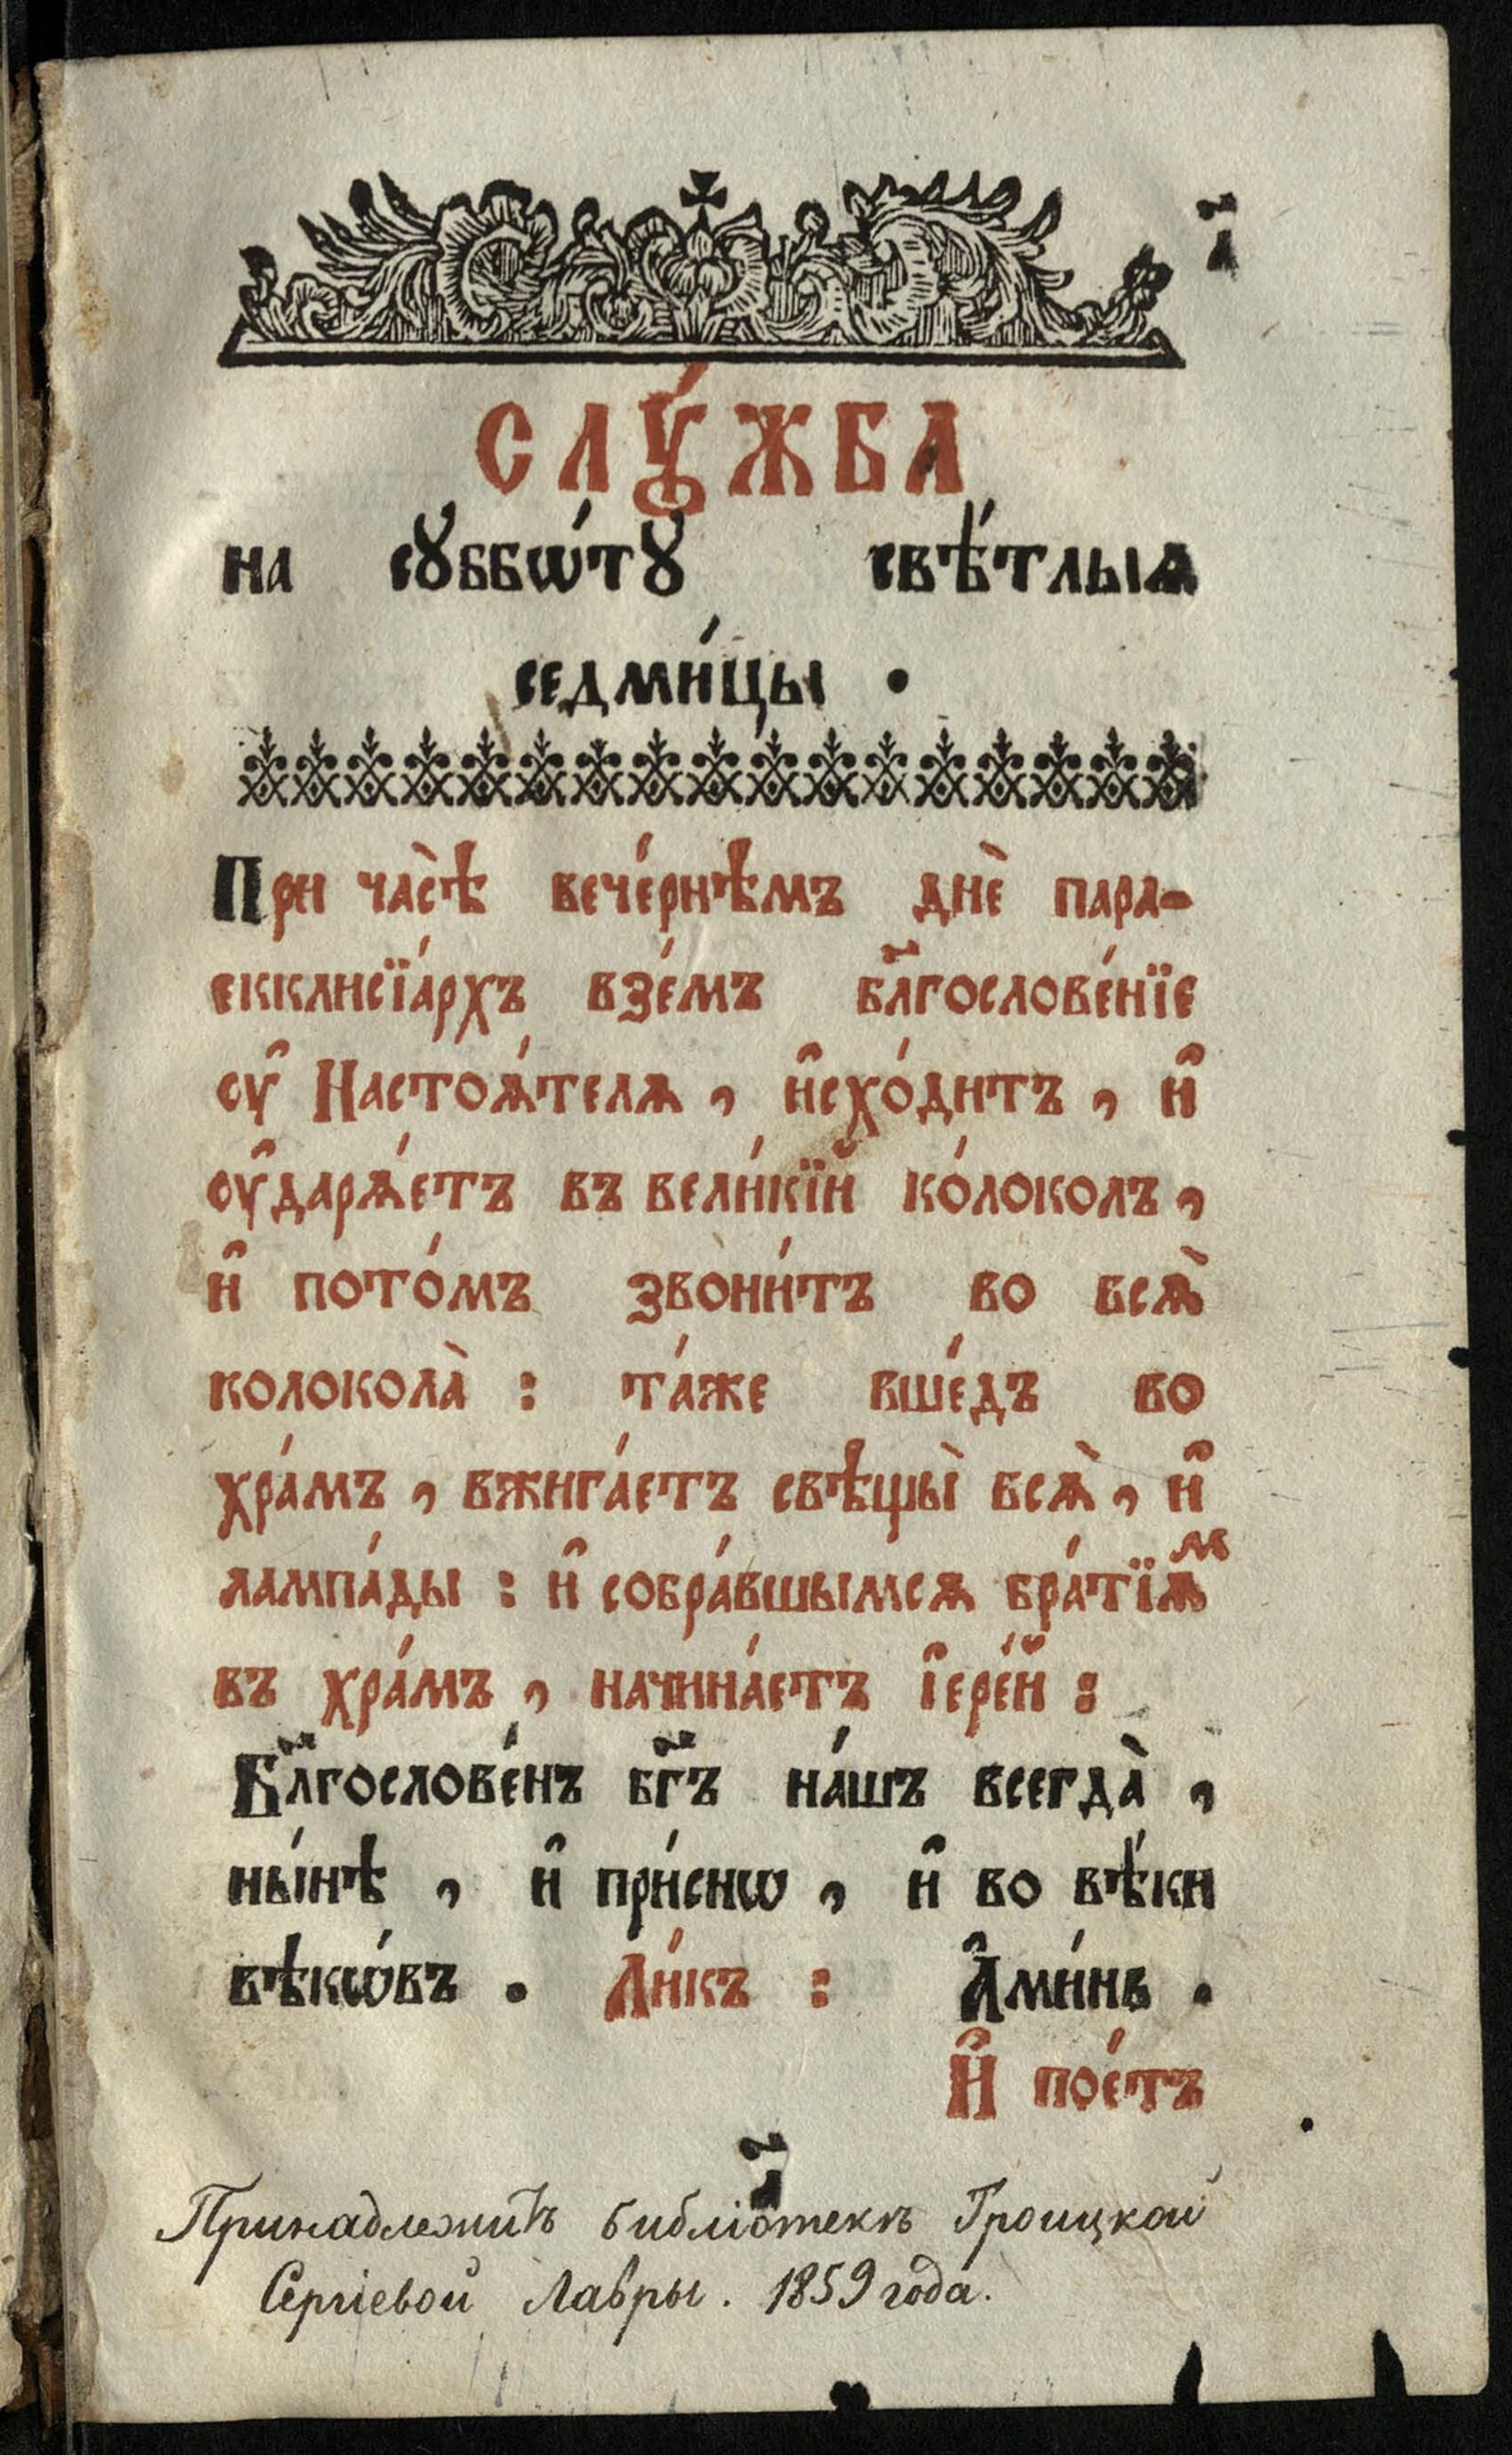 а҃
СЛꙊ́ЖБА
на сꙋббѡ́тꙋ свѣ́тлыѧ
седми́цы .
При часѣ̀ вече́рнѣмъ днѐ пара-
екклисїа́рхъ взе́мъ бл҃гослове́нїе
ᲂу҆ Настоѧ́телѧ , и҆схо́дитъ , и҆
ᲂу҆дарѧ́етъ въ вели́кїй ко́локолъ ,
и҆ пото́мъ звони́тъ во всѧ̀
колокола̀ : та́же вше́дъ во
хра́мъ , вжига́етъ свѣщы̀ всѧ̀ , и҆
лампа́ды : и҆ собра́вшымсѧ бра́тїѧⷨ
въ хра́мъ , начина́етъ і҆ере́й :
Бл҃гослове́нъ бг҃ъ на́шъ всегда̀ ,
ны́нѣ , и҆ при́снѡ , и҆ во вѣ́ки
вѣкѡ́въ . Ли́къ : А҆ми́нь .
И҆ пое́тъ
а҃
Принадлежитъ библіотекѣ Троицкой
Сергіевой Лавры. 1859 года.